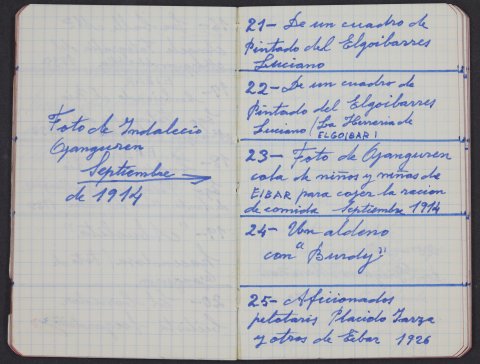 Foto de Indalecio
Ojanguren
Septiembre
de 1914
21- De un cuadro de
Pintado del Elgoibarres
Luciano
22- De un cuadro de
Pintado del Elgoibarres
Luciano / La Herreria de
ELGOIBAR /
23- Foto de Ojanguren
cola de niños y niñas de
EIBAR para cojer la racion
de comida Septiembre 1914
24- Un aldeno
con "Burdy"
25- Aficionados
pelotaris Placido Iarza
y otros de Eibar 1926